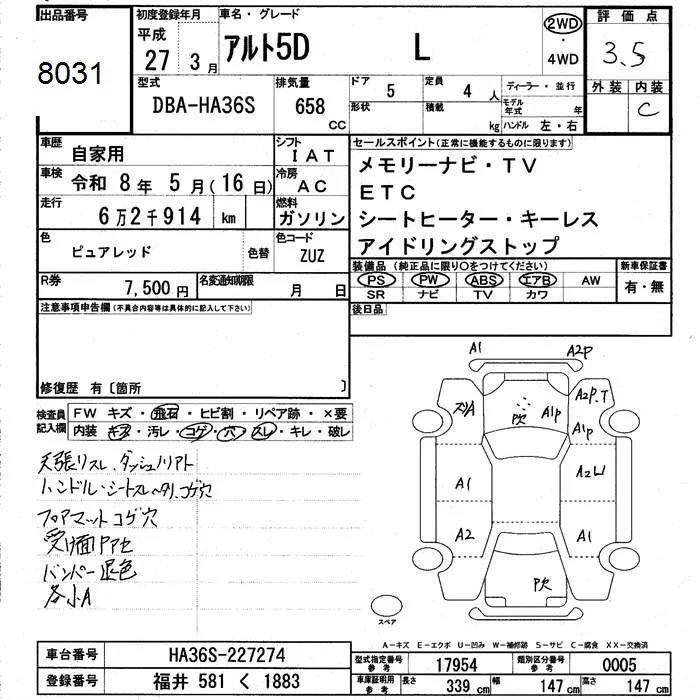 出品番号
8031
初度登録年月
平成
27 3月
車名・グレード
アルト5D L
2WD
・
4WD
評価点
3.5
外装 内装
C
型式
DBA-HA36S
排気量
658
CC
ドア 5
定員 4 人
形状
積載 kg
ディーラー・並行
モデル年式 年
ハンドル 左・右
車歴
自家用
シフト
IAT
車検
令和 8年 5月(16日)
冷房
AC
走行
6万2千914 km
燃料
ガソリン
色
ピュアレッド
色替
色コード
ZUZ
R券
7,500円
名変通知期限
月 日
セールスポイント(正常に機能するものに限ります)
メモリーナビ・TV
ETC
シートヒーター・キーレス
アイドリングストップ
装備品(純正品に限り○をつけてください)
PS PW ABS エアB AW
SR ナビ TV カワ
新車保証書
有・無
後日品
注意事項申告欄(不具合内容等は具体的に記入して下さい)
修復歴 有〔箇所 〕
検査員
記入欄
FW キズ・飛石・ヒビ割・リペア跡・×要
内装 キズ・汚レ・コゲ・穴・スレ・キレ・破レ
天張リスレ、ダッシュノリアト
ハンドル・シートスレヘタリ、コゲ穴
フロアマットコゲ穴
バンパー退色
各小A
A1
A2P
A2P.T
ズリA
吹
A1P
A1P
A1
A2U
A2
A1
P欠
スペア
A-キズ E-エクボ U-凹み W-補修跡 S-サビ C-腐食 XX-交換済
車台番号
HA36S-227274
登録番号
福井 581 く 1883
型式指定番号
参考
17954
類別区分番号
参考
0005
車庫証明用
参考
長さ 339 cm
幅 147 cm
高さ 147 cm